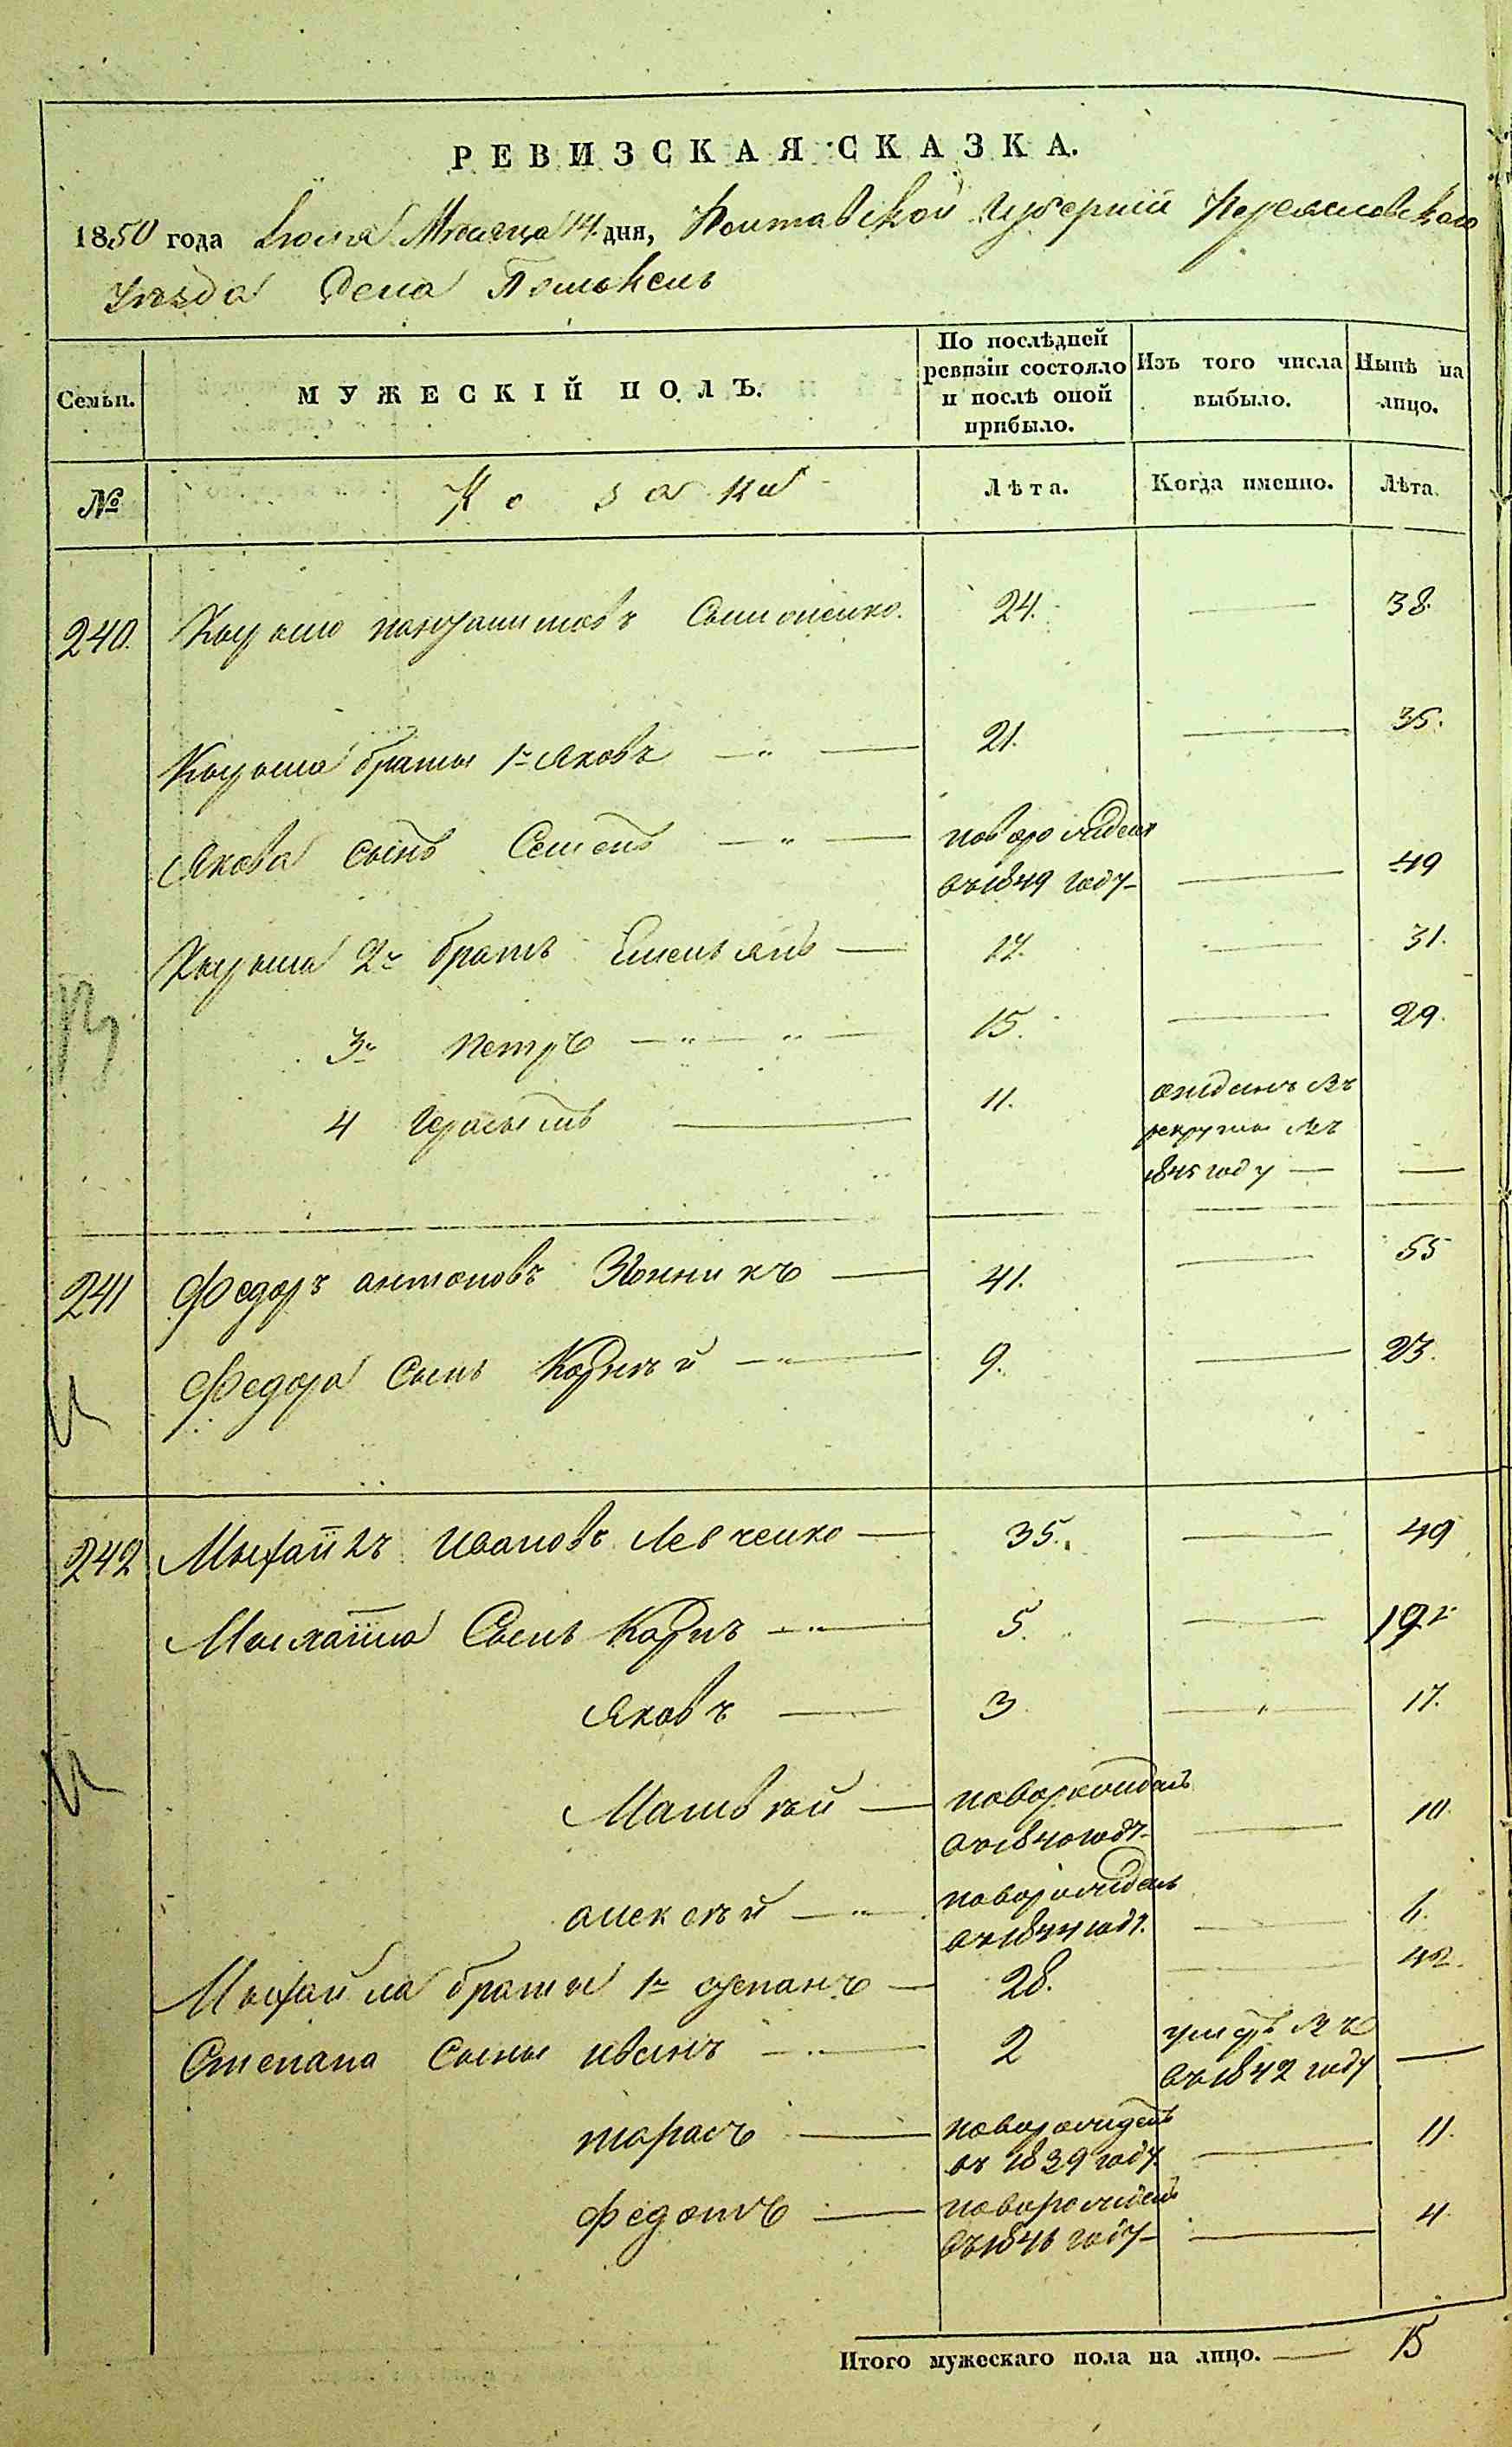 РЕВИЗСКАЯ СКАЗКА.
1850 года Июля Месяца 14 дня, Полтавской Губернии Переяславского
Уезда Села Помокель
Семьи.
МУЖЕСКІЙ ПОЛЪ.
По послѣдней ревизіи состояло и послѣ оной прибыло.
Изъ того числа выбыло.
Нынѣ на лицо.
№
Козаки
Лѣта.
Когда именно.
Лѣта.
240. 24. 38.
братья 1й Яковъ 21. 35.
Якова сынъ Семенъ новорожденъ
въ 1849 году 49
2й братъ Емельянъ 17. 31.
3й Петръ 15. 29.
4 Герасимъ 11. отданъ въ
рекруты въ
1845 году
241 Федоръ антоновъ 41. 55
Федора Сынъ Корней 9. 23.
242 Михаилъ Ивановъ Левченко 35. 49
Михайла Сынъ Карпъ 5. 19
Яковъ 3 17.
Матвѣй новорожденъ
въ 1840 году 10.
алексѣй новорожденъ
въ 1844 году. 6.
Михайла братья 1й степанъ 28. 42.
Степана Сыны иванъ 2 умеръ
въ 1842 году
тарасъ новорожденъ
въ 1839 году 11.
федотъ новорожденъ
въ 1846 году 4
Итого мужескаго пола на лицо. 15